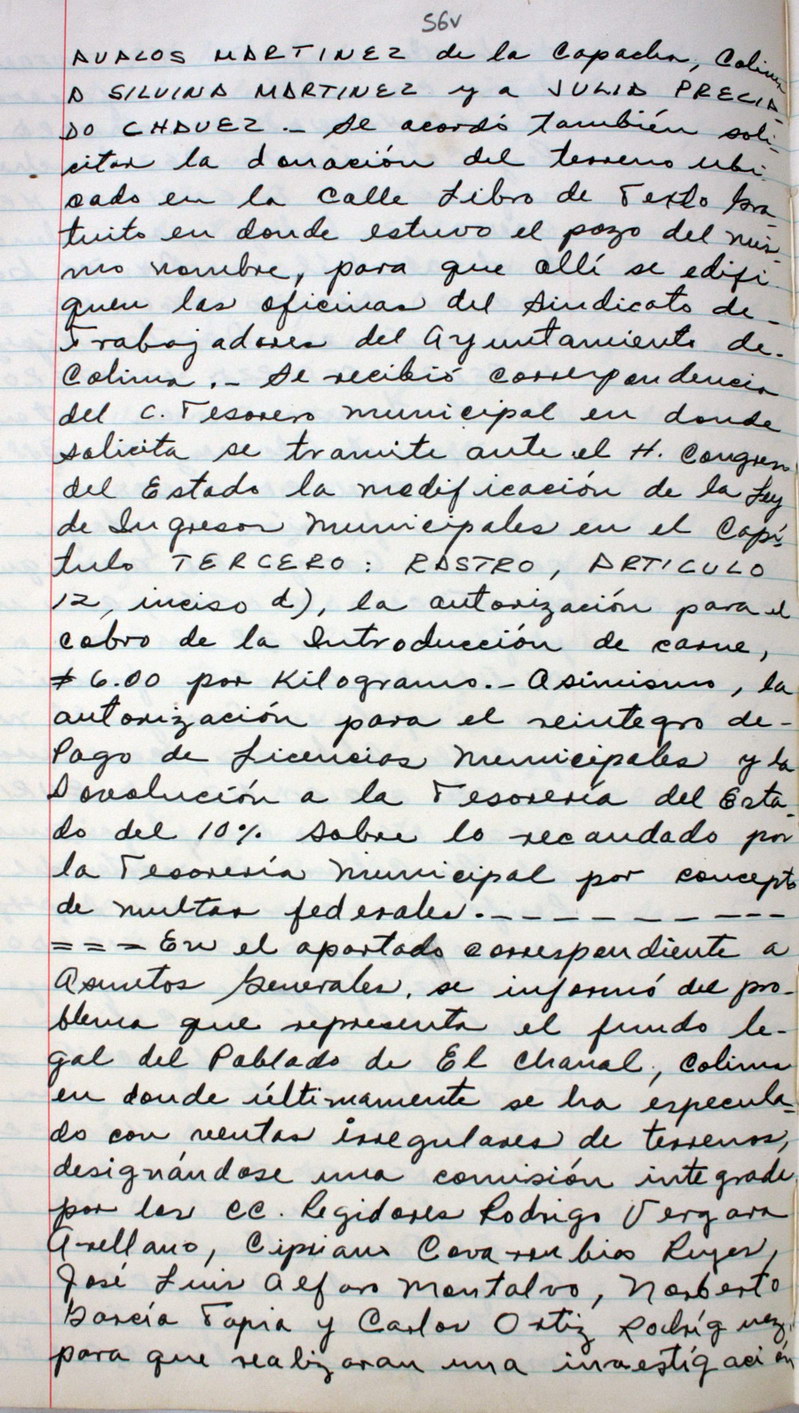 56v
AVALOS MARTINEZ de la Capacha, Colima
A SILVINA MARTINEZ y a JULIA PRECIA-
DO CHAVEZ.- Se acordó también soli-
citar la donación del terreno ubi-
cado en la calle Libro de Texto Gra-
tuito en donde estuvo el pozo del mis-
mo nombre, para que allí se edifi-
quen las oficinas del Sindicato de-
Trabajadores del Ayuntamiento de-
Colima.- Se recibió correspondencia
del C. Tesorero Municipal en donde
solicita se tramite ante el H. Congreso
del Estado la modificación de la Ley
de Ingresos Municipales en el Capí-
tulo TERCERO: RASTRO, ARTICULO
12, inciso d), la autorización para el
cobro de la Introducción de carne,
$6.00 por Kilogramo.- Asimismo, la
autorización para el reintegro de-
Pago de Licencias Municipales y la
Devolución a la Tesorería del Esta-
do del 10% sobre lo recaudado por
la Tesorería Municipal por concepto
de multas federales.- - - - - - - - -
= = = En el apartado correspondiente a
Asuntos Generales, se informó del pro-
blema que representa el fundo le-
gal del Poblado de El Chanal, Colima
en donde últimamente se ha especula-
do con ventas irregulares de terrenos,
designándose una comisión integrada
por los CC. Regidores Rodrigo Vergara
Arellano, Cipriano Covarrubias Reyes,
José Luis Alfaro Montalvo, Norberto
García Tapia y Carlos Ortiz Rodríguez,
para que realizaran una investigación